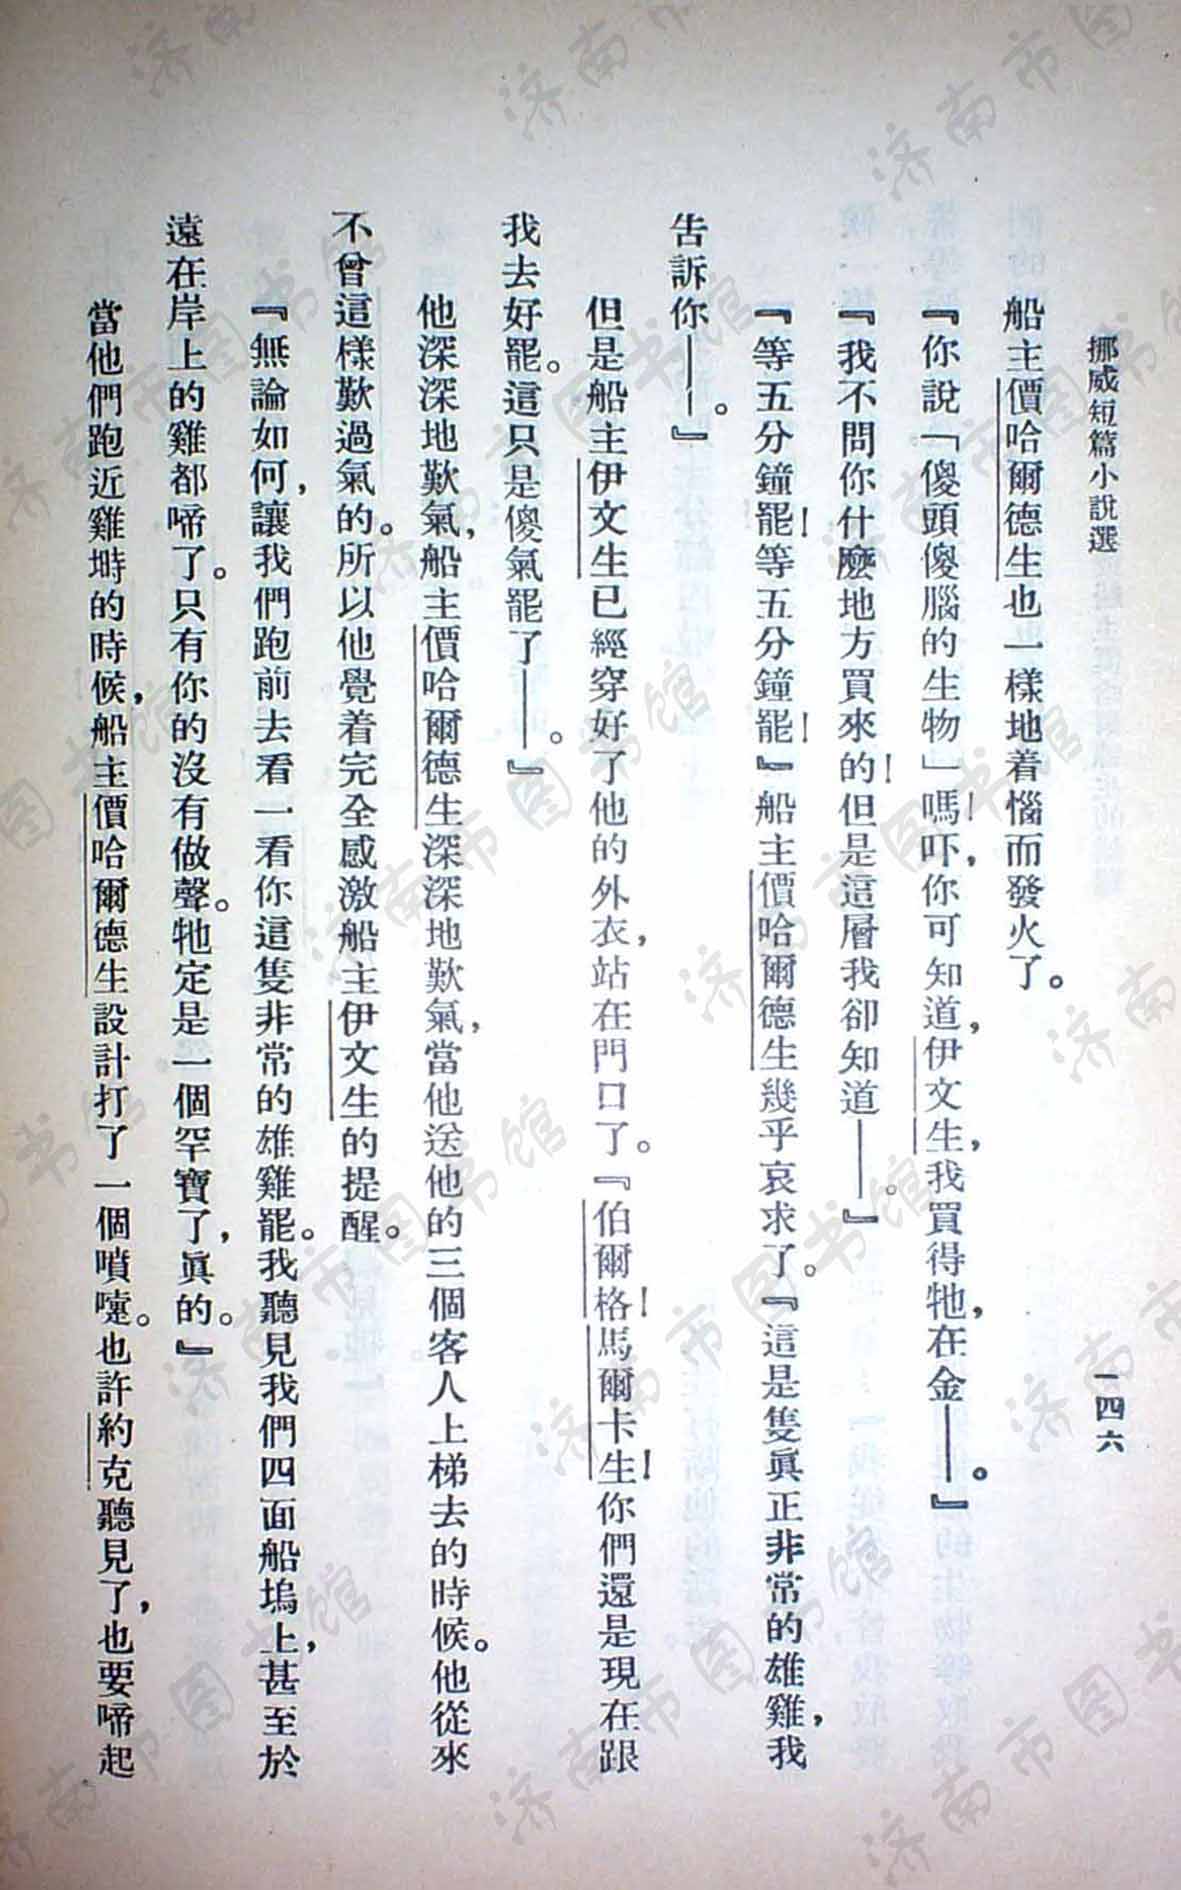 挪威短篇小說選
一四六
船主價哈爾德生也一樣地着惱而發火了。
『你說「傻頭傻腦的生物」嗎！吓，你可知道，伊文生，我買得牠，在金——。』
『我不問你什麼地方買來的！但是這層我卻知道——。』
『等五分鐘罷！等五分鐘罷！』船主價哈爾德生幾乎哀求了。『這是隻眞正非常的雄雞，我
告訴你——。』
但是船主伊文生已經穿好了他的外衣，站在門口了。『伯爾格！馬爾卡生！你們還是現在跟
我去好罷。這只是傻氣罷了——。』
他深深地歎氣，船主價哈爾德生深深地歎氣，當他送他的三個客人上梯去的時候。他從來
不曾這樣歎過氣的。所以他覺着完全感激船主伊文生的提醒。
『無論如何，讓我們跑前去看一看你這隻非常的雄雞罷。我聽見我們四面船塢上，甚至於
遠在岸上的雞都啼了。只有你的沒有做聲。牠定是一個罕寶了，眞的。』
當他們跑近雞塒的時候，船主價哈爾德生設計打了一個噴嚏。也許約克聽見了，也要啼起